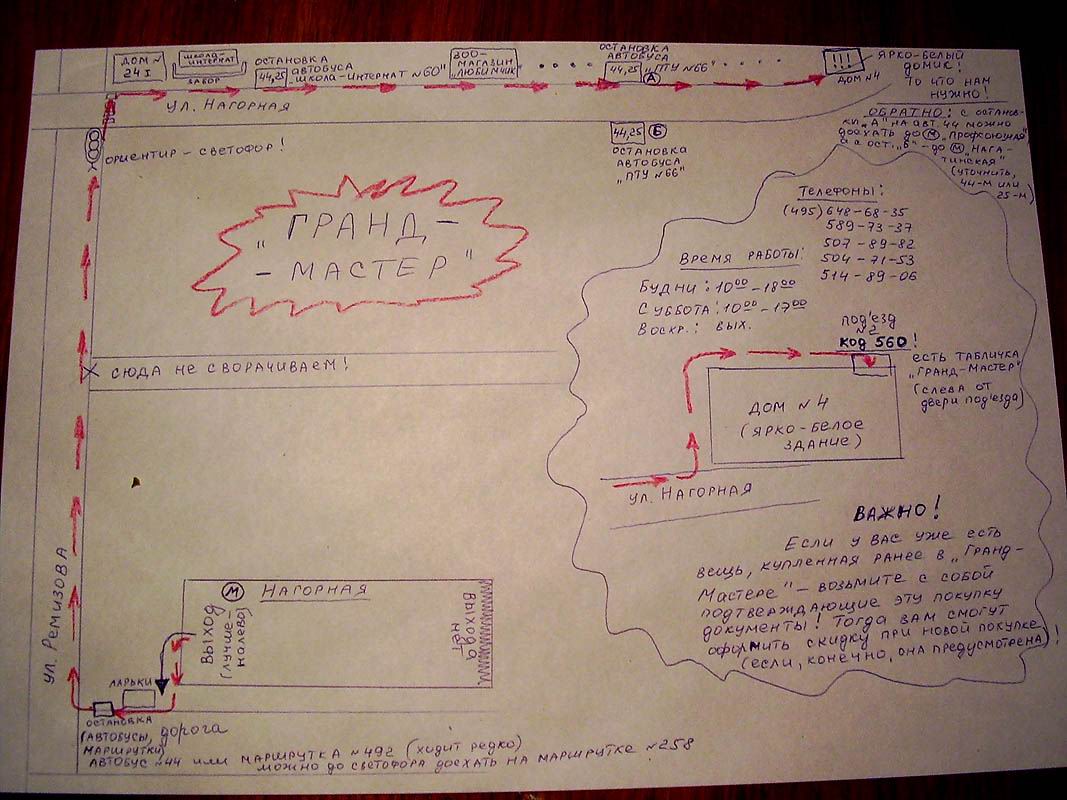 ДОМ №
24 I
ШКОЛА-
ИНТЕРНАТ
ЗАБОР
ОСТАНОВКА
АВТОБУСА
44,25
„ШКОЛА-ИНТЕРНАТ №60"
ЗОО-
МАГАЗИН
„ЛЮБИМЧИК"
ОСТАНОВКА
АВТОБУСА
44,25
„ПТУ №66"
А
!!!
ДОМ №4
ЯРКО-БЕЛЫЙ
ДОМИК!
ТО ЧТО НАМ
НУЖНО!
УЛ. НАГОРНАЯ
ОРИЕНТИР – СВЕТОФОР!
44,25
Б
ОСТАНОВКА
АВТОБУСА
„ПТУ №66"
ОБРАТНО: С ОСТАНОВ-
КИ „А" НА АВТ. 44 МОЖНО
ДОЕХАТЬ ДО М „ПРОФСОЮЗНАЯ"
А С ОСТ. „Б" – ДО М „НАГА-
ТИНСКАЯ"
(УТОЧНИТЬ,
44-М ИЛИ
25-М)
„ГРАНД-
-МАСТЕР"
Телефоны:
(495) 648-68-35
589-73-37
507-89-82
504-71-53
514-89-06
ВРЕМЯ РАБОТЫ:
БУДНИ: 10⁰⁰–18⁰⁰
СУББОТА: 10⁰⁰–17⁰⁰
ВОСКР.: ВЫХ.
ПОД'ЕЗД
№2
КОД 560!
ЕСТЬ ТАБЛИЧКА
„ГРАНД-МАСТЕР"
(СЛЕВА ОТ
ДВЕРИ ПОД'ЕЗДА)
ДОМ №4
(ЯРКО-БЕЛОЕ
ЗДАНИЕ)
УЛ. НАГОРНАЯ
СЮДА НЕ СВОРАЧИВАЕМ!
ВАЖНО!
ЕСЛИ У ВАС УЖЕ ЕСТЬ
ВЕЩЬ, КУПЛЕННАЯ РАНЕЕ В „ГРАНД-
МАСТЕРЕ" – ВОЗЬМИТЕ С СОБОЙ
ПОДТВЕРЖДАЮЩИЕ ЭТУ ПОКУПКУ
ДОКУМЕНТЫ! ТОГДА ВАМ СМОГУТ
ОФОРМИТЬ СКИДКУ ПРИ НОВОЙ ПОКУПКЕ
(ЕСЛИ, КОНЕЧНО, ОНА ПРЕДУСМОТРЕНА)!
УЛ. РЕМИЗОВА
М НАГОРНАЯ
ВЫХОД
(ЛУЧШЕ –
НАЛЕВО)
ВЫХОДА
НЕТ
ЛАРЬКИ
ОСТАНОВКА
(АВТОБУСЫ,
МАРШРУТКИ)
дорога
АВТОБУС №44 ИЛИ МАРШРУТКА №492 (ХОДИТ РЕДКО)
МОЖНО ДО СВЕТОФОРА ДОЕХАТЬ НА МАРШРУТКЕ №258